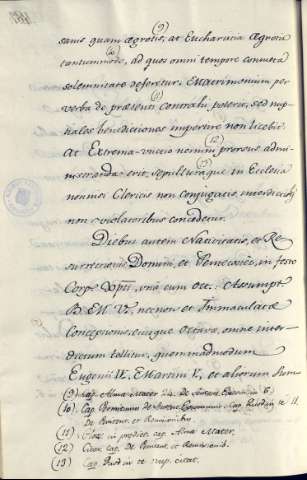 sanis quam ægrotis, at Eucharistia Ægrotis (9)
tantummodo, ad quos omni tempore consueta (10)
solemnitate defertur, Matrimonium per
verba de præsenti contrahi poterit, sed nup- (11)
tiales benedictiones impertire non licebit.
At Extrema-unctio nemini prorsus admi- (12)
nistranda erit, sepulturaque in Ecclesia (13)
nonnisi Clericis non conjugatis, interdicti
non violatoribus concedetur.
Diebus autem Nativitatis, et Re-
surrectionis Domini, et Pentecostes, in festo
Corpꝰ Xpti, una cum Oct. Assumpt
B. M. V., necnon et Immaculatæ
Conceptionis, eiusque Octava, omne inter-
dictum tollitur, quemadmodum
Eugenii IV, Martini V, et aliorum Sum
(9) Cap. Alma Mater 24. de Senten. Excom. in 6.
(10) Cap. Permittimus de Senten. Excommunic. Cap. Quod in te 11.
de Pœnitent. et Remissionibus.
(11) Citat. in prædict. cap. Alma Mater.
(12) Citat. cap. de Pœnitent. et Remissionib.
(13) Cap. Quod in te sup. citat.